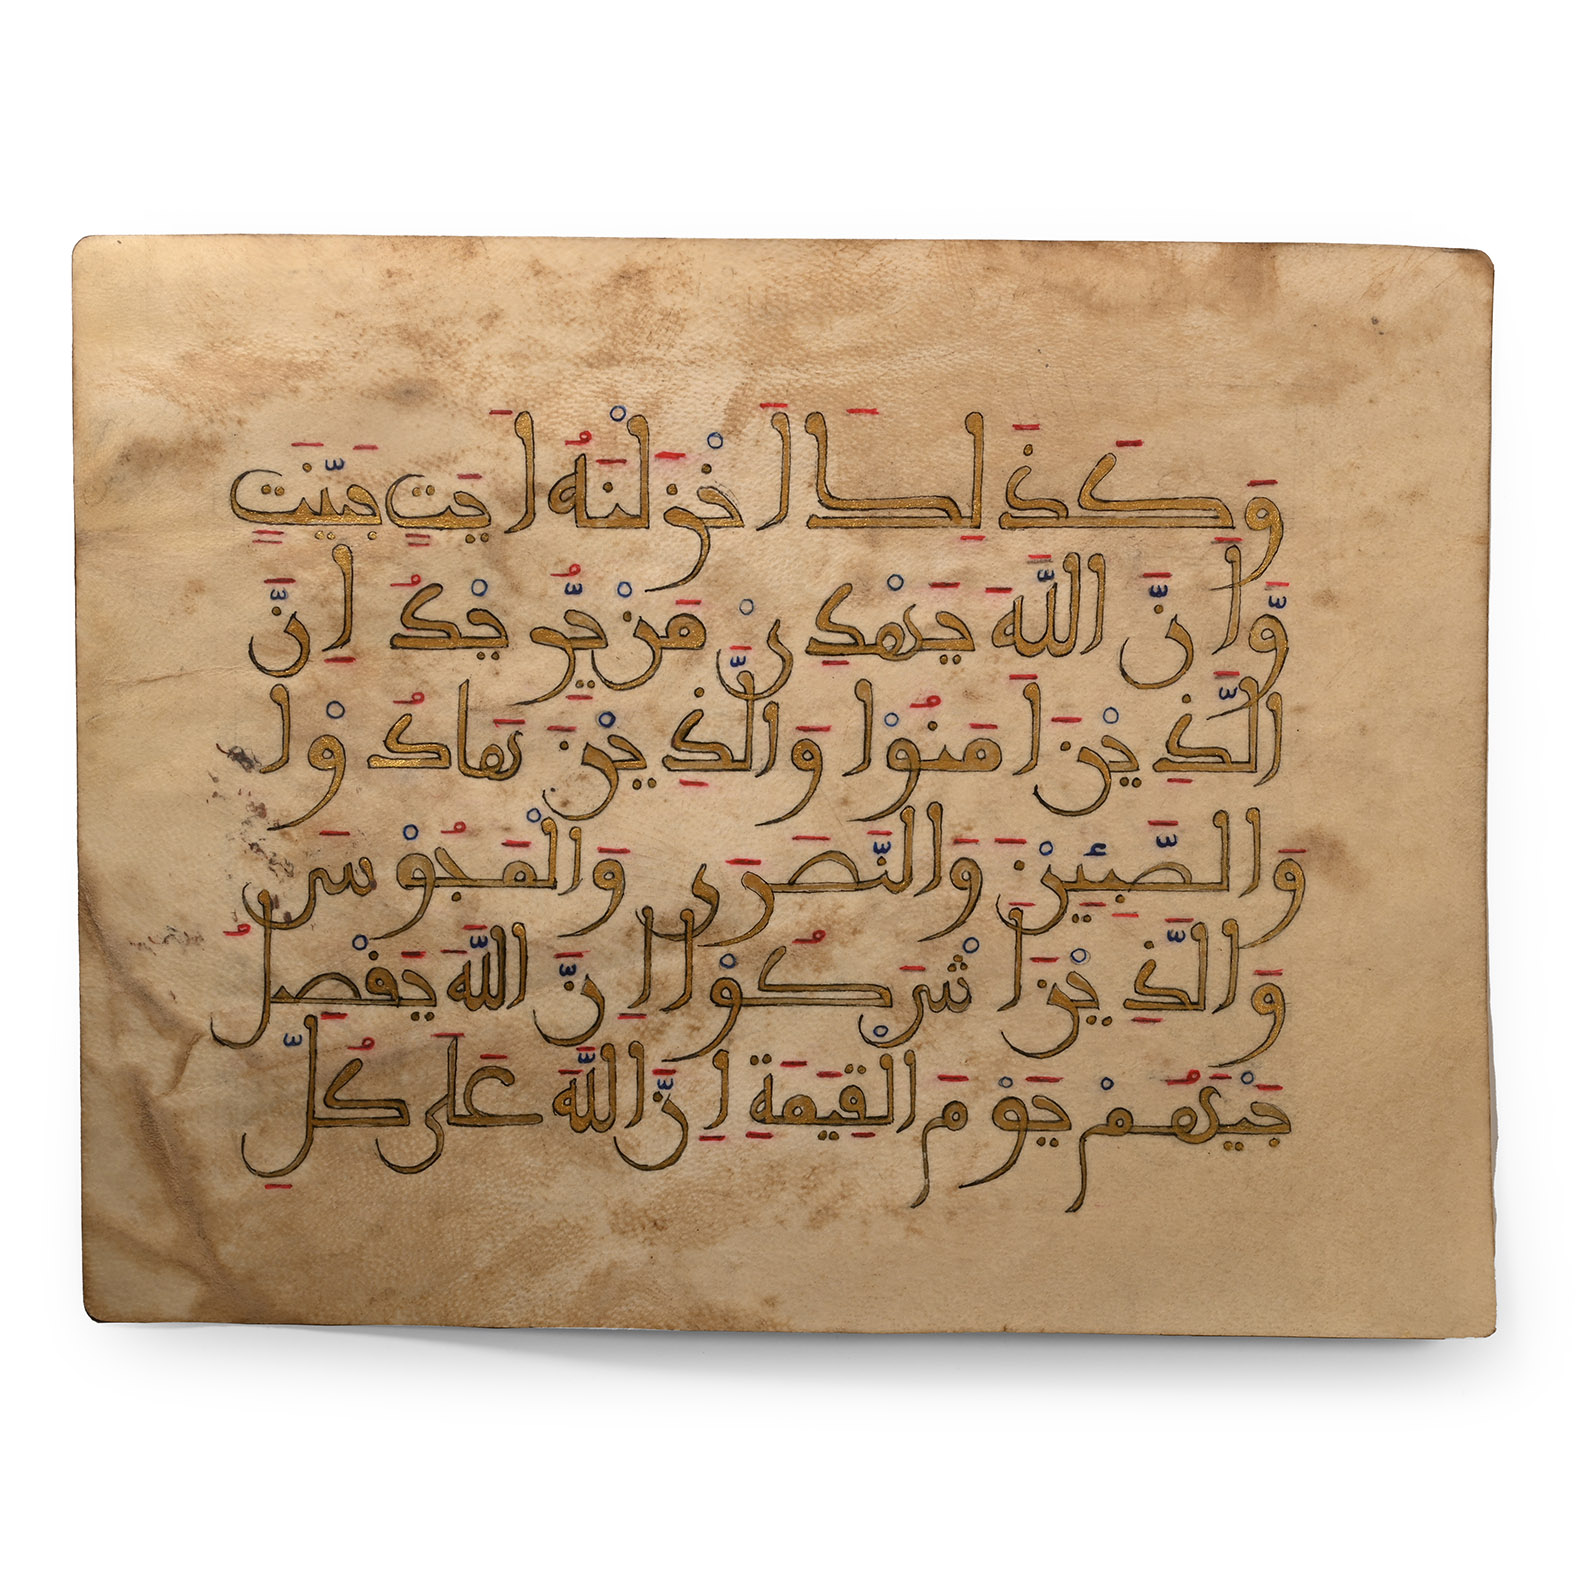 وَكَذَلِكَ اَنْزَلْنَهُ اَيَتٍ بَيِّنَتٍ
وَّاَنَّ اللَّهَ يَهْدِىْ مَنْ يُّرِيْدُ اِنَّ
الَّذِيْنَ اَمَنُوْا وَالَّذِيْنَ هَادُوْا
وَالصَّبِئِيْنَ وَالنَّصَرَى وَالْمَجُوْسَ
وَالَّذِيْنَ اَشْرَكُوْا اِنَّ اللَّهَ يَفْصِلُ
بَيْنَهُمْ يَوْمَ الْقِيَمَةِ اِنَّ اللَّهَ عَلَى كُلِّ